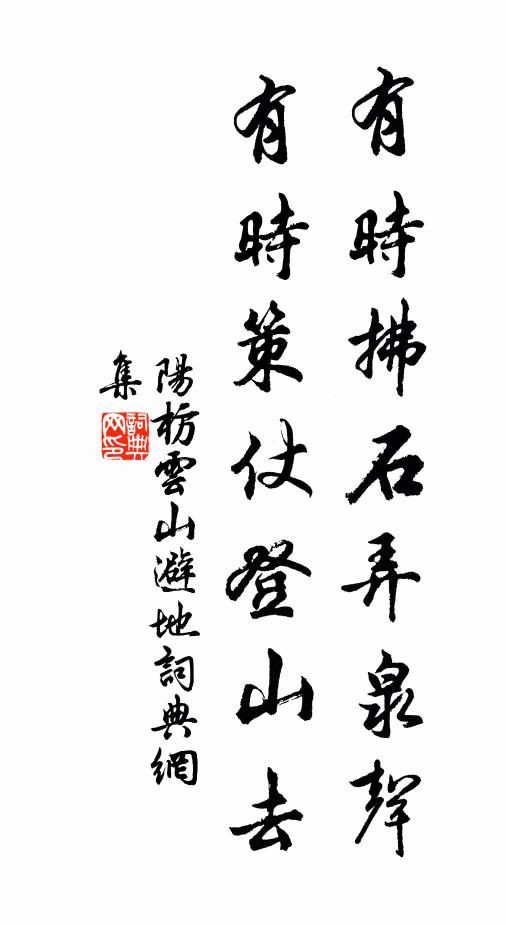 有時拂石弄泉聲
有時策仗登山去
陽枋雲山避地詞典網
集
詞典
网印